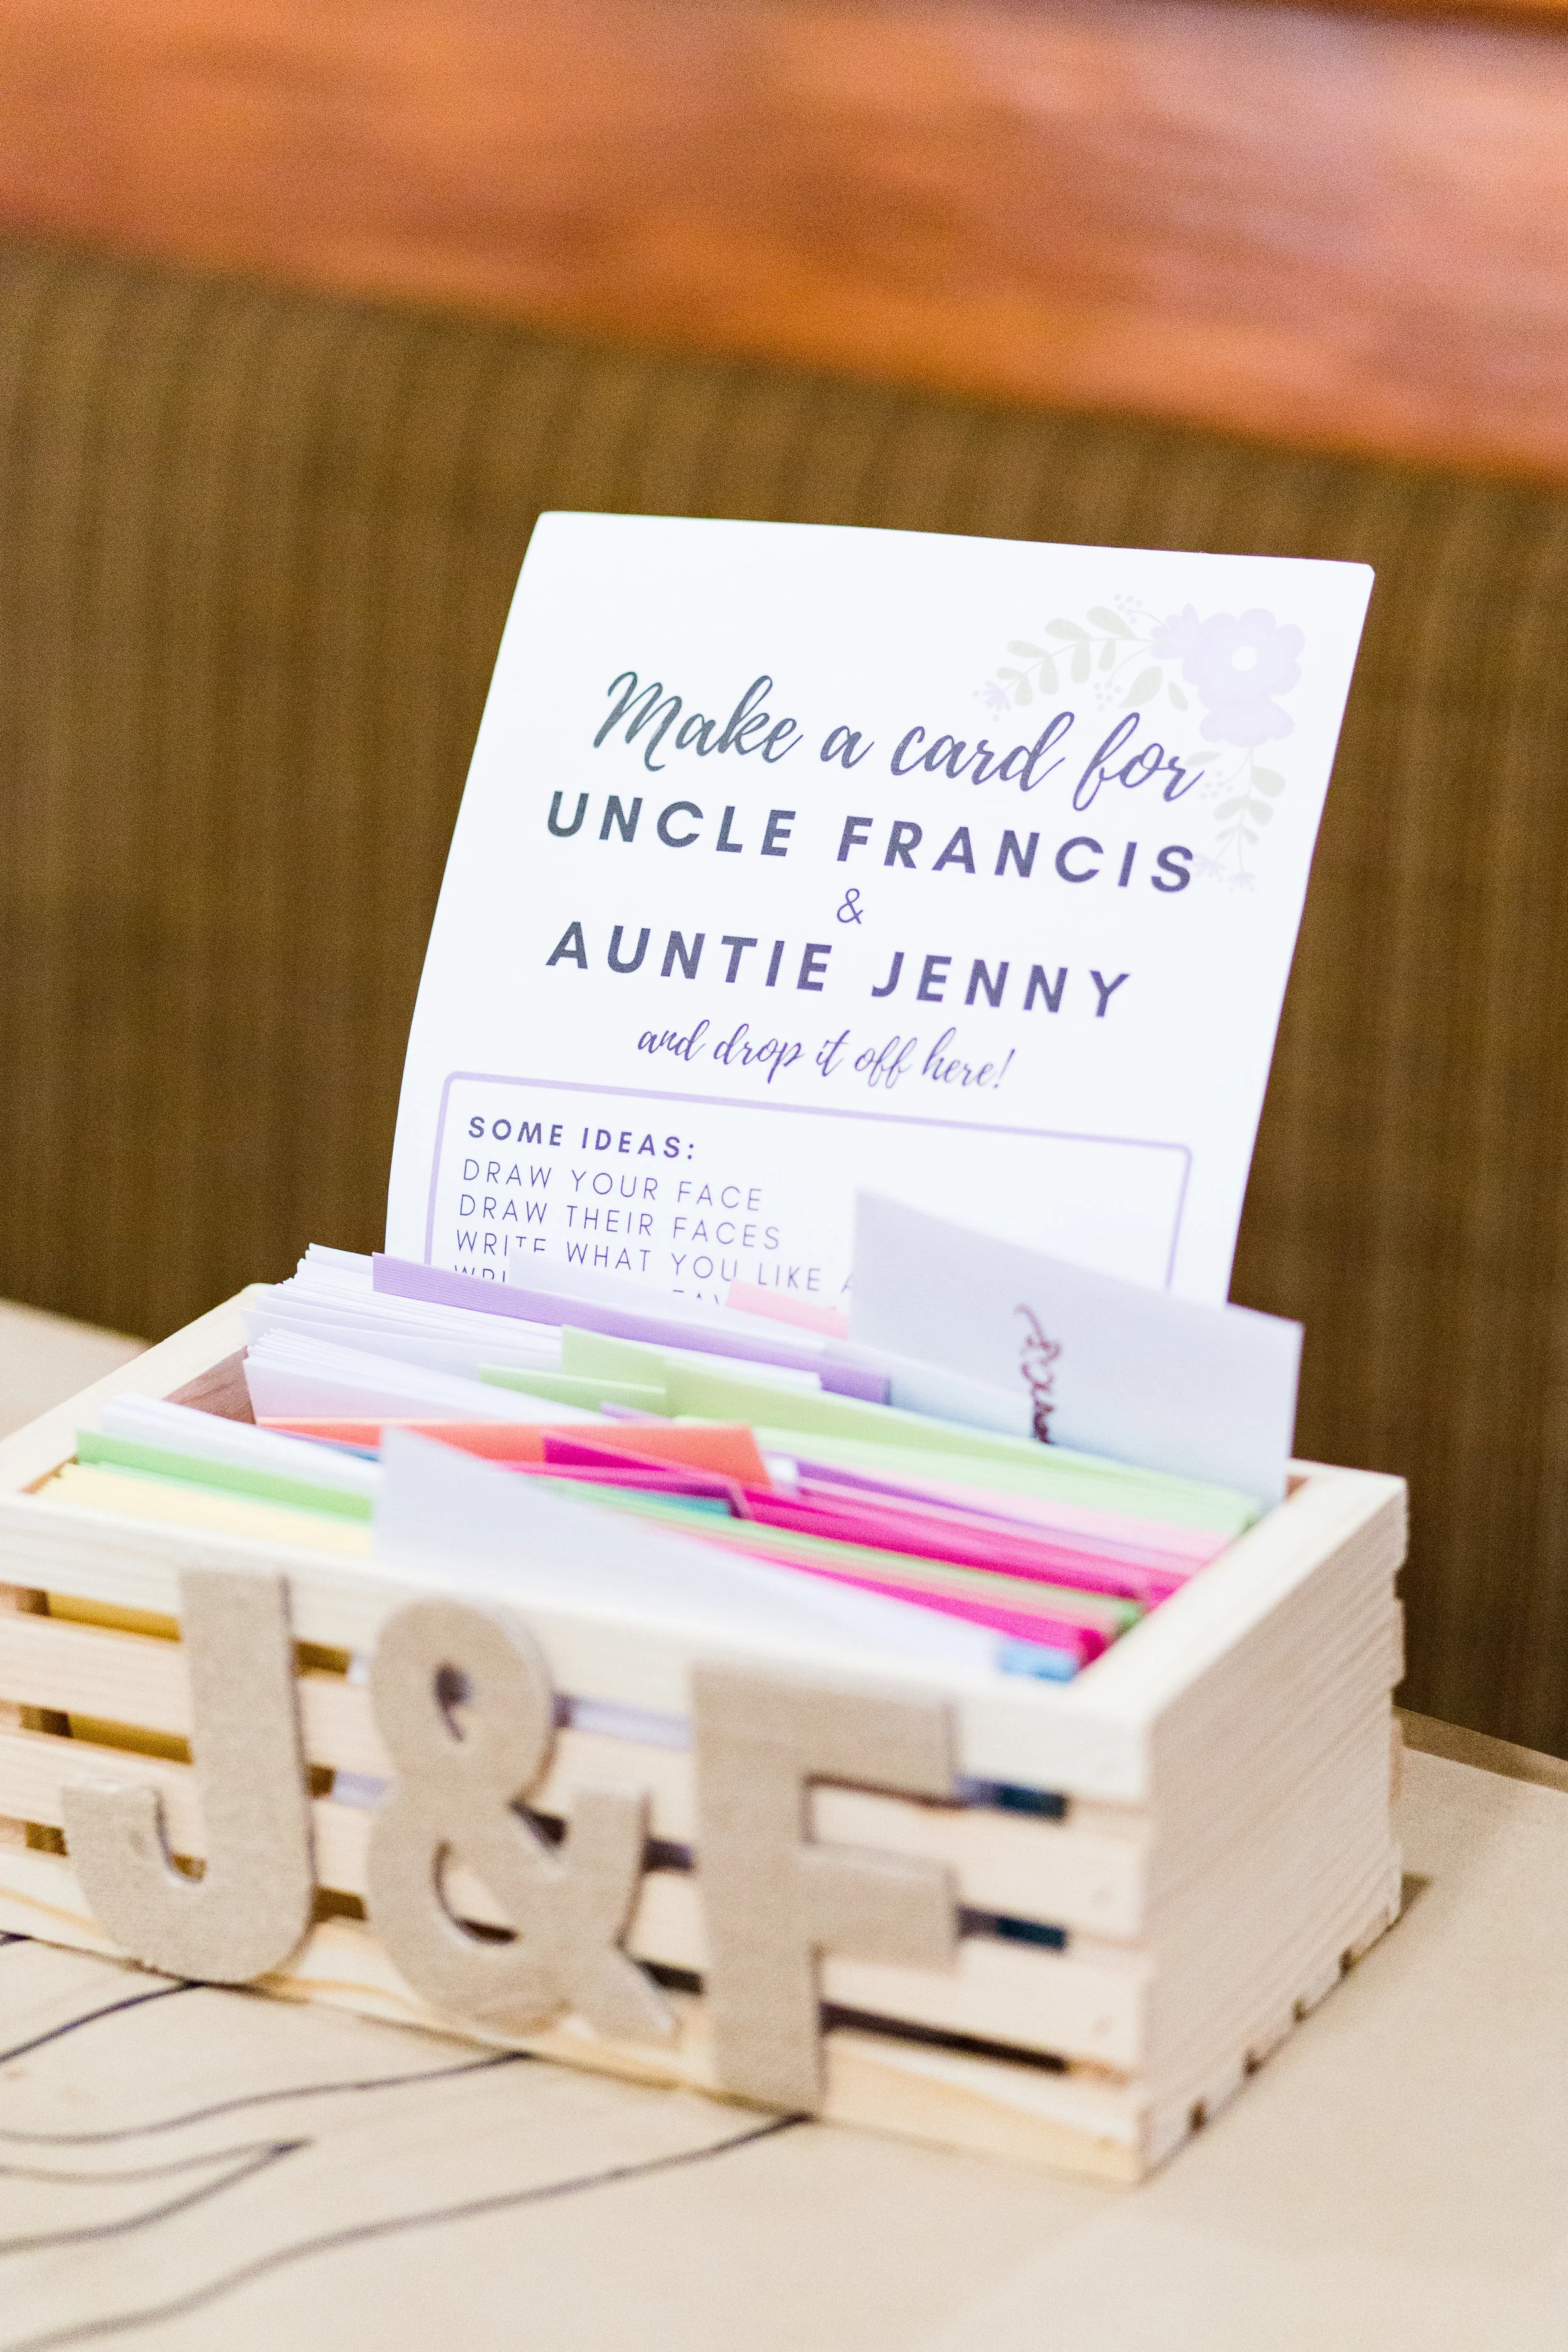 Make a card for
UNCLE FRANCIS
&
AUNTIE JENNY
and drop it off here!
SOME IDEAS:
DRAW YOUR FACE
DRAW THEIR FACES
WRITE WHAT YOU LIKE
J&F